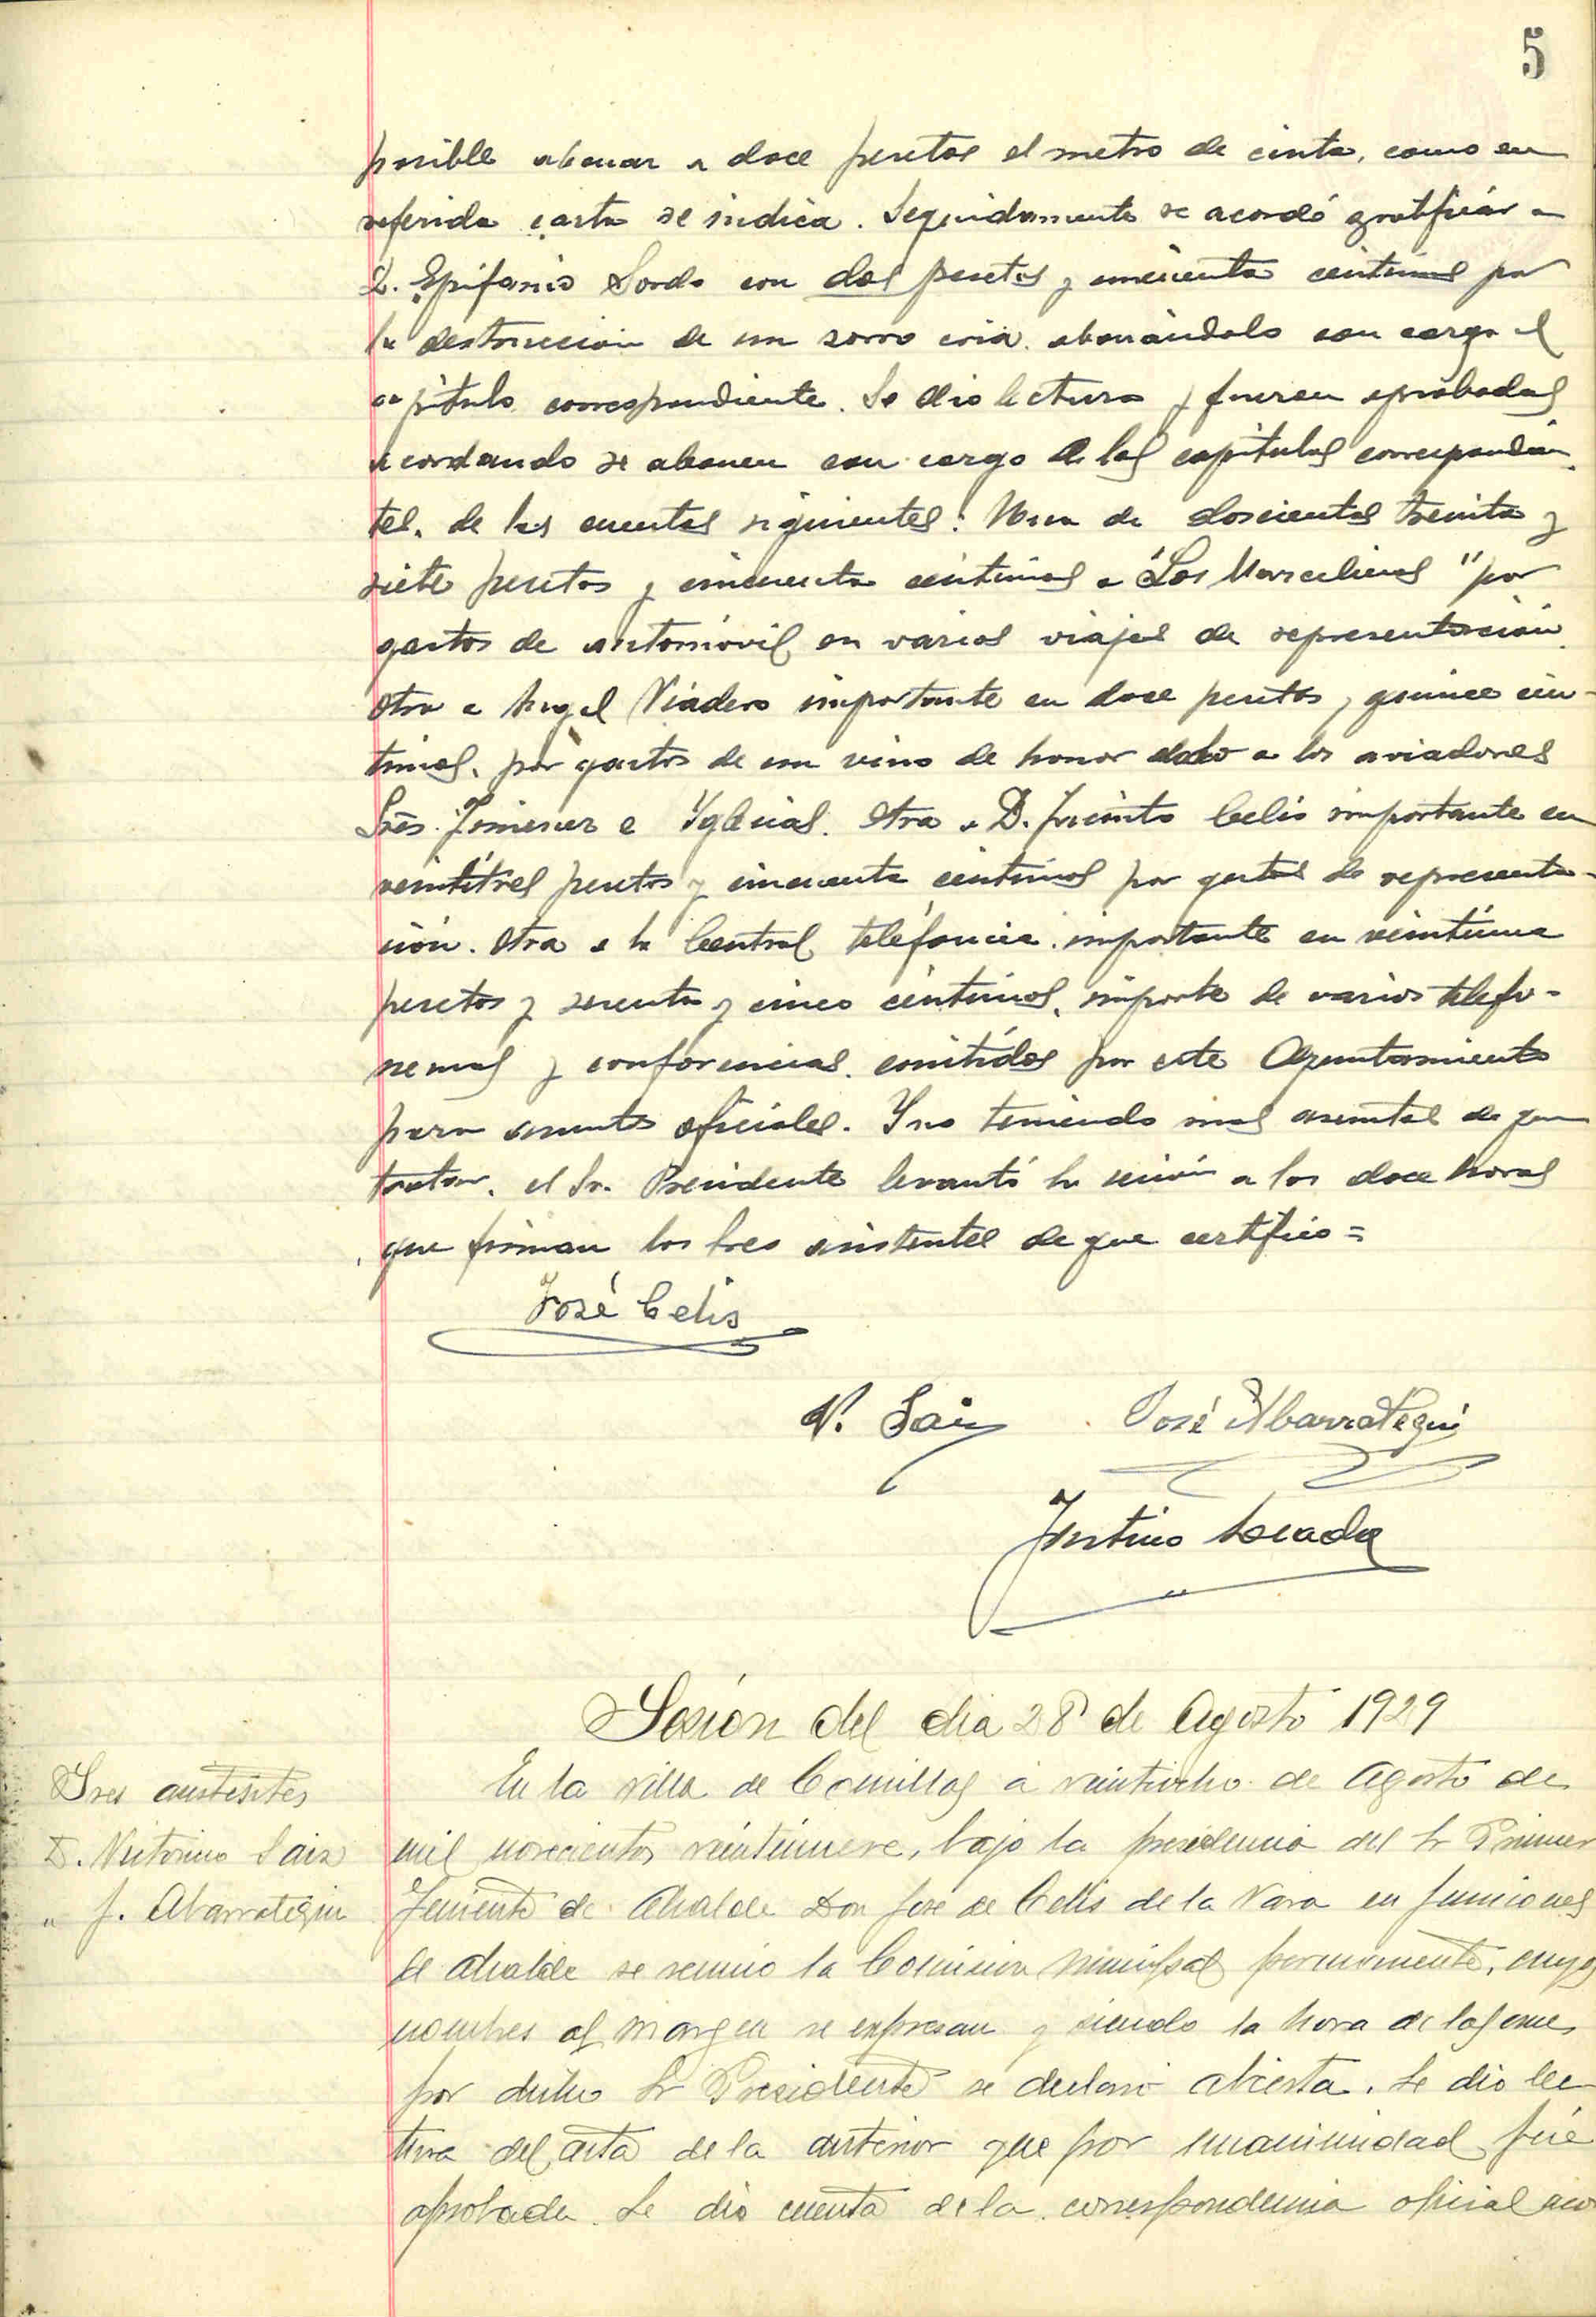 5
posible abonar a doce pesetas el metro de cinta, como en
referida carta se indica. Seguidamente se acordó gratificár a
D. Epifanio Sordo con dos pesetas y cincuenta centimos por
la destrucción de un zorro cria. abonándolo con cargo al
capítulo correspondiente. Se dio lectura y fueron aprobadas
acordando se abonen con cargo a los capitulos correspondien
tes. de las cuentas siguientes: Una de doscientas treinta y
siete pesetas y cincuenta céntimos a "Los Marcelinos" por
gastos de automóvil en varios viajes de representación.
Otra a Angel Viadero importante en doce pesetas y quince cén-
timos. por gastos de un vino de honor dado a los aviadores
Srēs. Jimenez e Yglesias. Otra a D. Jacinto Celis importante en
veintitrés pesetas y cincuenta centimos por gastos de representa-
ción. Otra a la Central teléfonica. importante en veintiuna
pesetas y sesenta y cinco céntimos. importe de varios telefo-
nemas y conferencias. emitídos por este Ayuntamiento
para asuntos oficiales. Y no teniendo mas asuntos de que
tratar. el Sr. Presidente levantó la sesión a las doce horas
que firman los Sres asistentes de que certifico =
José Celis
V. Saiz José Abarrategui
Justino
Sesión del dia 28 de Agosto 1929
Sres asistentes
D. Victorino Saiz
" J. Abarrategui
En la villa de Comillas a veintiocho de Agosto de
mil novecientos veintinueve, bajo la presidencia del Sr Primer
Teniente de Alcalde Don José de Celis de la Vara en funciones
de alcalde se reunió la Comision Municipal permanente, cuyos
nombres al margen se expresan y siendo la hora de las once
por dicho Sr Presidente se declaró abierta. Se dio lec
tura del acta de la anterior que por unanimidad fué
aprobada. Se dio cuenta de la correspondencia oficial aco